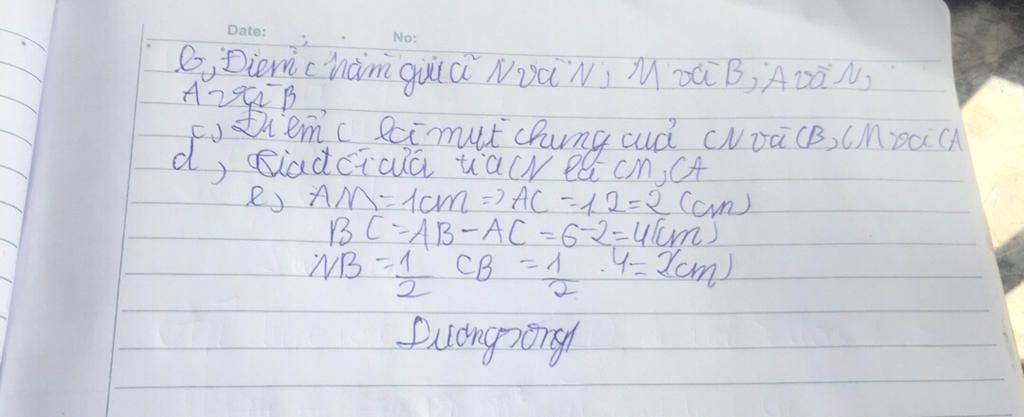 Date: No:
b, Điểm C nằm giữa N và N, M và B, A và N,
A và B
c, Điểm C là mút chung của CN và CB, CM và CA
d, Tia đối của tia CN là CM, CA
e, AM = 1cm => AC = 1.2 = 2 (cm)
BC = AB - AC = 6-2 = 4(cm)
NB = 1/2 CB = 1/2 .4 = 2(cm)